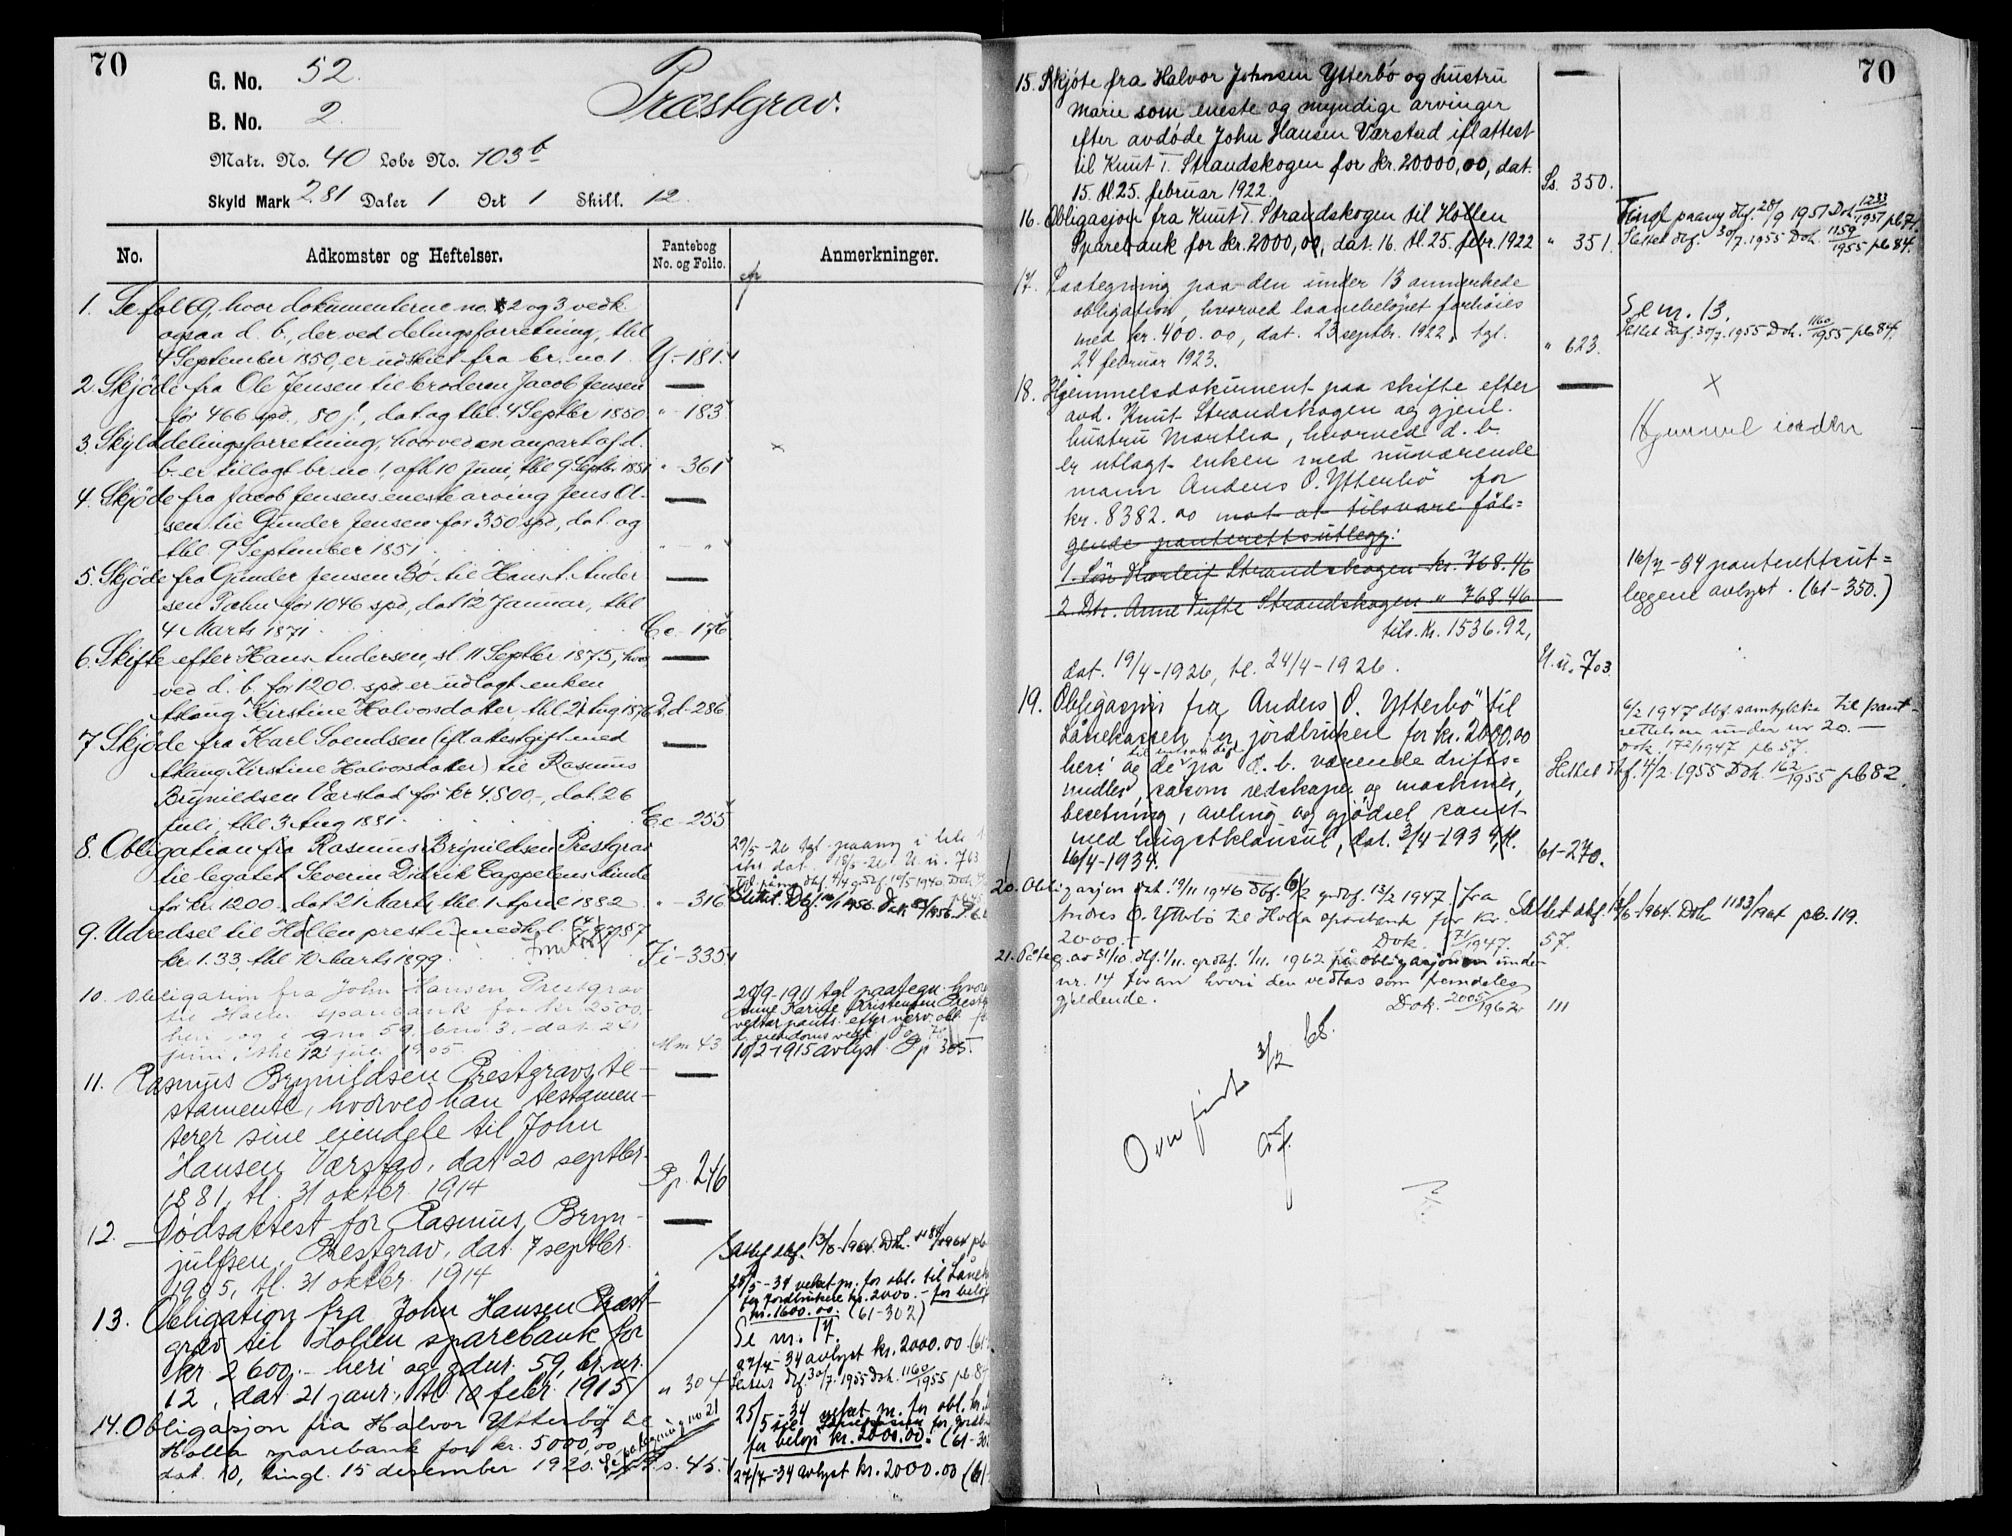 70
G. No. 52.
B. No. 2
Præstgrav.
Matr. No. 40 Løbe No. 103b
Skyld Mark 2.81 Daler 1 Ort 1 Skill. 12
No. Adkomster og Heftelser. Pantebog No. og Folio. Anmerkninger.
1. Se fol 69, hvor dokumenterne no. 2 og 3 vedk.
ogsaa d. b., der ved delingsforretning, thl
4 September 1850, er udskilt fra br. no 1. Y.-181.
2. Skjøde fra Ole Jensen til broderen Jacob Jensen
for 466 spd., 80 s., dat og thl. 4 Septbr 1850. " - 183
3. Skylddelingsforretning, hvorved en anpart af d.
b. er tillagt br. no 1, afh 10 Juni, thl 9 Septbr 1851 " - 361 x
4. Skjøde fra Jacob Jensens eneste arving Jens Ol-
sen til Gunder Jensen for 350 spd, dat. og
thl 9 September 1851. " - "
5. Skjøde fra Gunder Jensen Bø til Hans Ander
sen for 1046 spd, dat 12 Januar, thl
4 Marts 1871. Cc-176
6. Skifte efter Hans Andersen, sl. 11 Septbr 1875, hvor
ved d. b. for 1200 spd er udlagt enken
Aslaug Kirstine Halvorsdatter, thl 21 Aug 1876 Dd-286
7 Skjøde fra Karl Svendsen (ifl attest gift med
Aslaug Kirstine Halvorsdatter) til Rasmus
Brynildsen Værstad for kr 4.800,-, dat. 26
Juli, thl 3 Aug 1881. Ee-255
8. Obligation fra Rasmus Brynildsen Prestgrav
til legatet Severin Didrik Cappelens Minde
for kr. 1200.- dat 21 Marts thl 1 April 1882. " - 316
9. Udredsel til Hollen presti med
kr. 1.33, thl 10 Marts 1899. Ji-335
10. Obligasjon fra John Hansen Prestgrav
til Hollen sparebank for kr 2500.-
heri og i gno 59, bno 3.- dat. 24
juni, thl 12 juli 1905. Mm 43
20/9-1911 tgl paategn. hvor
Anne Karine Kristensen Prestg
10/2-1915 avlyst. Pp 305.
11. Rasmus Brynildsen Prestgravs te-
stamente, hvorved han testamen-
terer sine eiendele til John
Hansen Værstad, dat 20 septbr.
1881, tl. 31 oktbr. 1914 Pp. 246
12. Dødsattest for Rasmus Bryn-
julfsen Prestgrav, dat. 7 septbr.
1905, tl. 31 oktbr. 1914
13. Obligation fra John Hansen Præst-
grav til Hollen sparebank for
kr 2600.- heri og gdnr. 59, br. nr.
12, dat 21 janr., tl. 10 febr. 1915 " 304
25/5-34 veket pr. for obl. til Lånek
for jordbrukere kr. 2000.- for beløp
kr. 1600.00. (61-302)
Se nr. 17.
27/7-34 avlyst kr. 2000.00 (61-
Slettet dbf. 30/7.1955 Dok. 1160/1955 pb 84
14. Obligasjon fra Halvor Ytterbø til
Holla sparebank for kr. 5000,00
dat. 10, tingl. 15 desember 1920. Se påtegning no 21 Rs. 45.
25/5-34 veket pr. for obl. kr.
til Lånekassen for Jordbr
for beløp kr. 2000.00. (61-30
27/7-34 avlyst kr. 2000.00 (61-
70
15. Skjøte fra Halvor Johnsen Ytterbø og hustru
Marie som eneste og myndige arvinger
efter avdøde John Hansen Værstad ifl attest
til Knut T. Strandskogen for kr. 20000,00, dat.
15. tl. 25. februar 1922. Ss. 350.
16. Obligasjon fra Knut T. Strandskogen til Hollen
Sparebank for kr. 2000,00, dat. 16. tl. 25. febr. 1922 " 351.
Tingl paany dbf. 28/9 1951 Dok. 1233/1951 pb 74.
Slettet dbf. 30/7.1955 Dok. 1159/1955 pb 84.
17. Paategning paa den under 13 anmerkede
obligation, hvorved laanebeløpet forhøies
med kr. 400.00, dat. 23 septbr. 1922, tgl.
24 februar 1923. " 623.
Se nr. 13.
Slettet dbf. 30/7.1955 Dok. 1160/1955 pb 84.
18. Hjemmelsdokument paa skifte efter
avd. Knut Strandskogen og gjenl.
hustru Marthea, hvorved d. b.
er utlagt enken med nuværende
mann Anders O. Ytterbø for
kr. 8382.00 mot at tilsvare føl=
gende panterettsutlegg:
1. Søn Thorleif Strandskogen kr. 768.46
2. Dtr. Anne Tufte Strandskogen " 768.46
tils. kr. 1536.92,
dat. 19/4-1926, tl. 24/4-1926. U.u. 703
x
Hjemmel iorden
16/7-34 panterettsut=
leggene avlyst. (61-350.)
19. Obligasjon fra Anders O. Ytterbø til
Lånekassen for jordbrukere for kr. 2000.00
heri og de til enhver tid på d. b. værende drifts=
midler, såsom redskaper og maskiner,
besetning, avling og gjødsel samt
med hugstklausul, dat. 3/4-1934, tl.
16/4-1934. 61-270.
6/2 1947 dbf samtykke til pant=
settelsen under nr 20. -
Dok. 172/1947 pb 57.
Slettet dbf. 4/2.1955 Dok. 162/1955 pb 82.
20. Obligasjon dat. 19/11 1946 dbf. 6/2 grdbf. 13/2 1947 fra
Anders O. Ytterbø til Holla sparebank for kr.
2000.- Dok. 171/1947. 57.
Slettet dbf. 13/6-1964. Dok. 1183/1964 pb. 119.
21. Påteg. av 31/10. dbf. 1/11. grdbf. 1/11. 1962 på obligasjonen under
nr. 14 foran hvori den vedtas som fremdeles
gjeldende. Dok. 2005/1962 111
Overført 3/2 65.